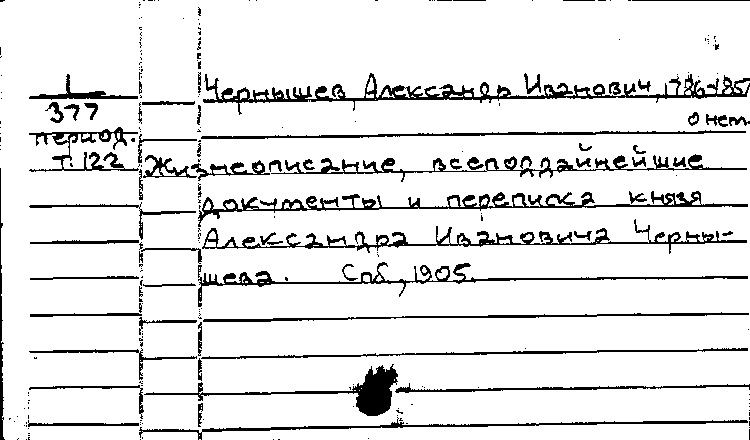 1
377
период.
т. 122
Чернышев, Александр Иванович, 1786-185
о нем.
Жизнеописание, всеподдайнейшие
документы и переписка князя
Александра Ивановича Черны-
шева. Спб, 1905.